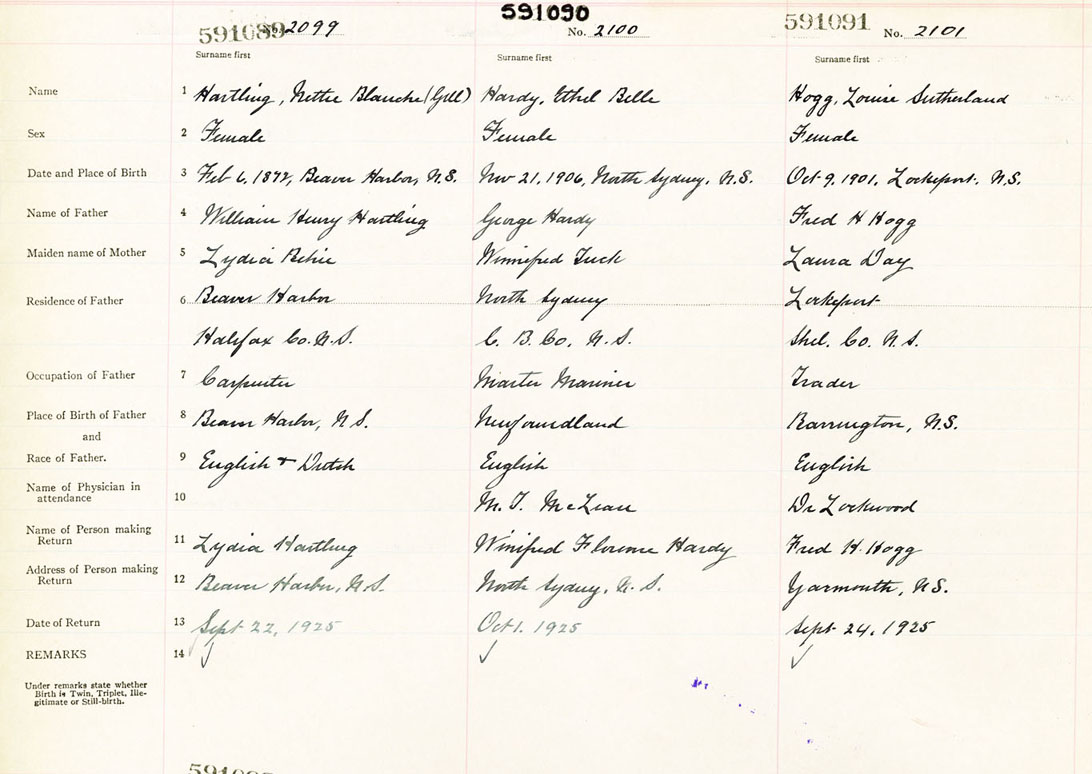 591089 No. 2099 591090 No. 2100 591091 No. 2101
Surname first Surname first Surname first
Name 1 Hartling, Nettie Blanche (Gill) Hardy, Ethel Belle Hogg, Louise Sutherland
Sex 2 Female Female Female
Date and Place of Birth 3 Feb 6, 1872, Beaver Harbor, N.S. Nov 21, 1906, North Sydney, N.S. Oct 9, 1901, Lockeport, N.S.
Name of Father 4 William Henry Hartling George Hardy Fred H Hogg
Maiden name of Mother 5 Lydia Winnifred Tuck Laura Day
Residence of Father 6 Beaver Harbor North Sydney Lockeport
Halifax Co. N.S. C. B. Co. N.S. Shel. Co. N.S.
Occupation of Father 7 Carpenter Master Mariner Trader
Place of Birth of Father 8 Beaver Harbor, N.S. Newfoundland Barrington, N.S.
and
Race of Father. 9 English + Dutch English English
Name of Physician in
attendance 10 M. T. McLean Dr Lockwood
Name of Person making
Return 11 Lydia Hartling Winifred Florence Hardy Fred H. Hogg
Address of Person making
Return 12 Beaver Harbor, N.S. North Sydney, N.S. Yarmouth, N.S.
Date of Return 13 Sept 22, 1925 Oct 1. 1925 Sept 24, 1925
REMARKS 14
Under remarks state whether
Birth is Twin, Triplet, Ille-
gitimate or Still-birth.